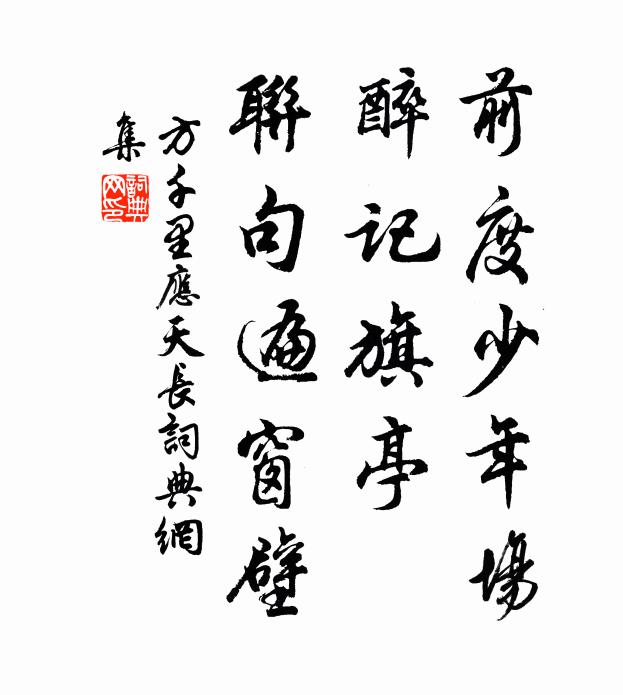 前度少年場
醉記旗亭
聯句遍窗壁
方千里應天長詞典網
集
詞典
网印